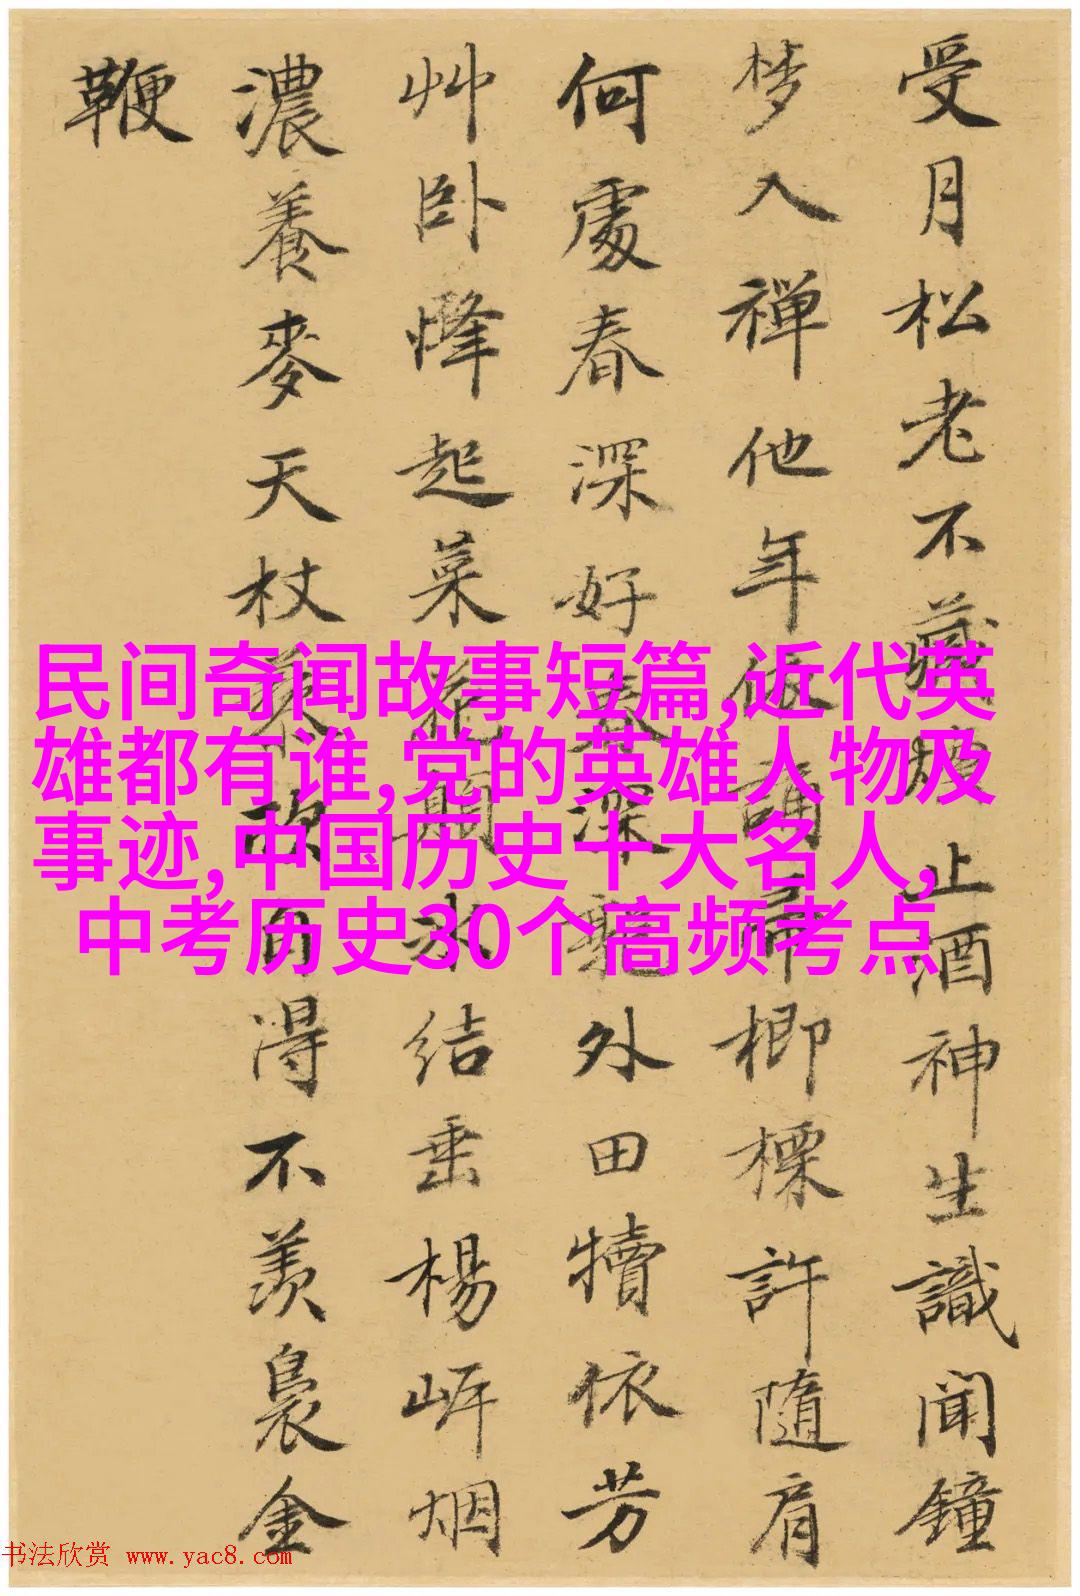 受月松老不藏烟止酒神生識聞鐘
梦入禅他年依誦帚榔檪許随肩
何處春深好春深郭外田犢依芳
艸卧烽起菜花開冰结垂楊岍烟
濃養麥天杖藜欣自得不羨裊金
鞭
民间奇闻故事短篇,近代英
雄都有谁,党的英雄人物及
事迹,中国历史十大名人,
中考历史30个高频考点
书法欣赏 www.yac8.com